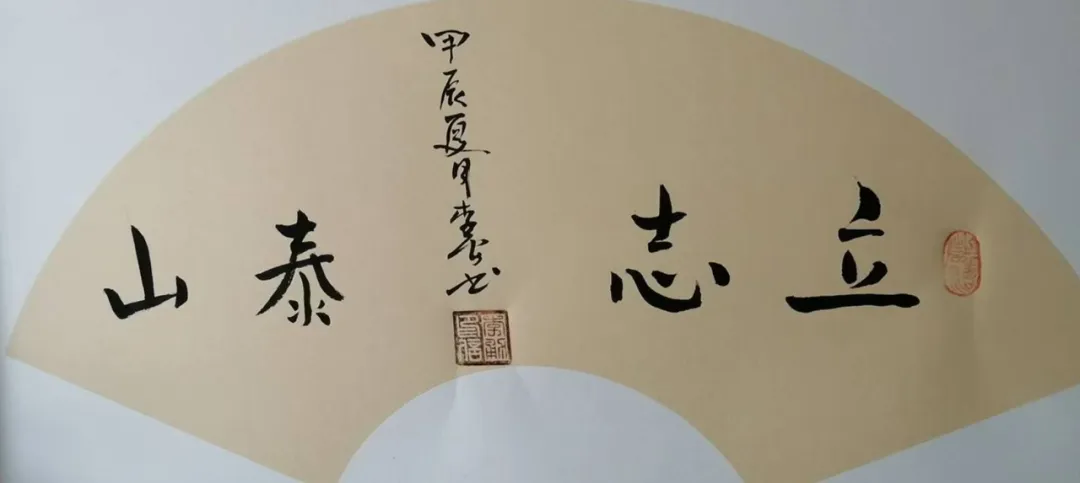 立志泰山
甲辰夏月李书